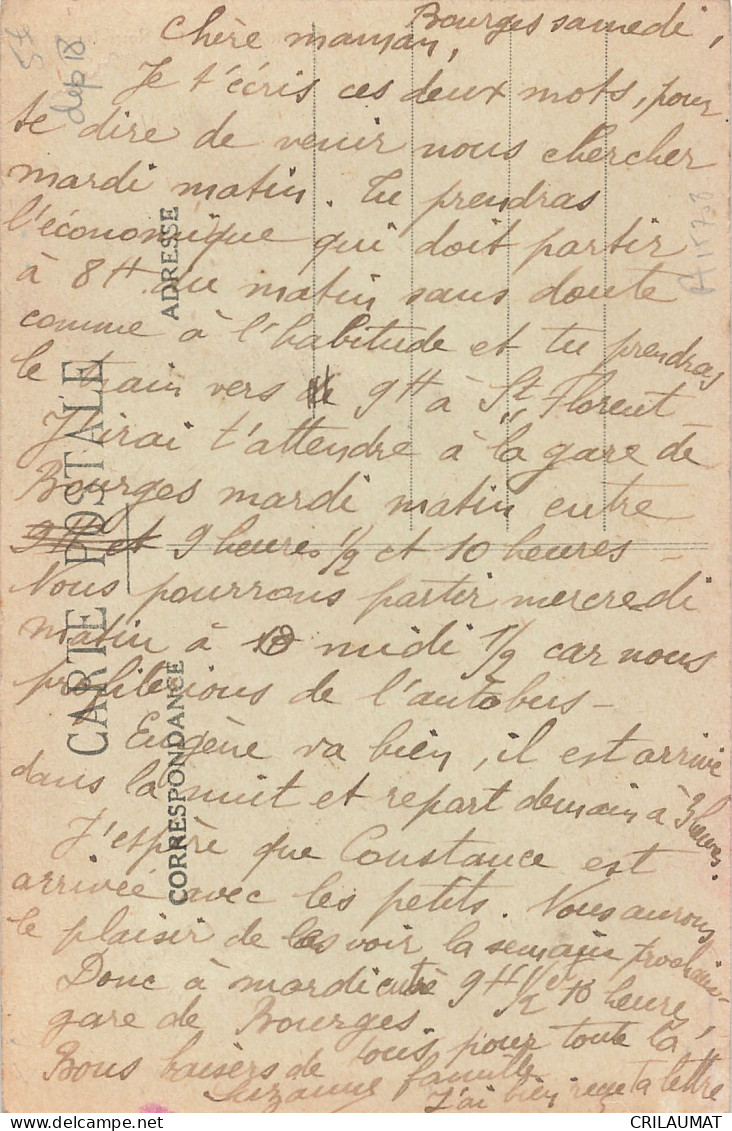 Bourges samedi,
Chère maman,
Je t'écris ces deux mots, pour
te dire de venir nous chercher
mardi matin. Tu prendras
l'économique qui doit partir
à 8H du matin sans doute
comme à l'habitude et tu prendras
le train vers 9H à St Florent
J'irai t'attendre à la gare de
Bourges mardi matin entre
9H et 9 heures 1/2 et 10 heures -
Nous pourrons partir mercredi
matin à midi 1/2 car nous
profiterions de l'autobus -
Eugène va bien, il est arrivé
dans la nuit et repart demain à 3 heures.
J'espère que Constance est
arrivée avec les petits. Nous aurons
le plaisir de les voir la semaine prochaine -
Donc à mardi entre 9H 1/2 10 heures,
gare de Bourges.
Bons baisers de tous pour toute la
famille
Suzanne
J'ai bien reçu ta lettre
CARTE POSTALE
CORRESPONDANCE
ADRESSE
dep 18
CRILAUMAT